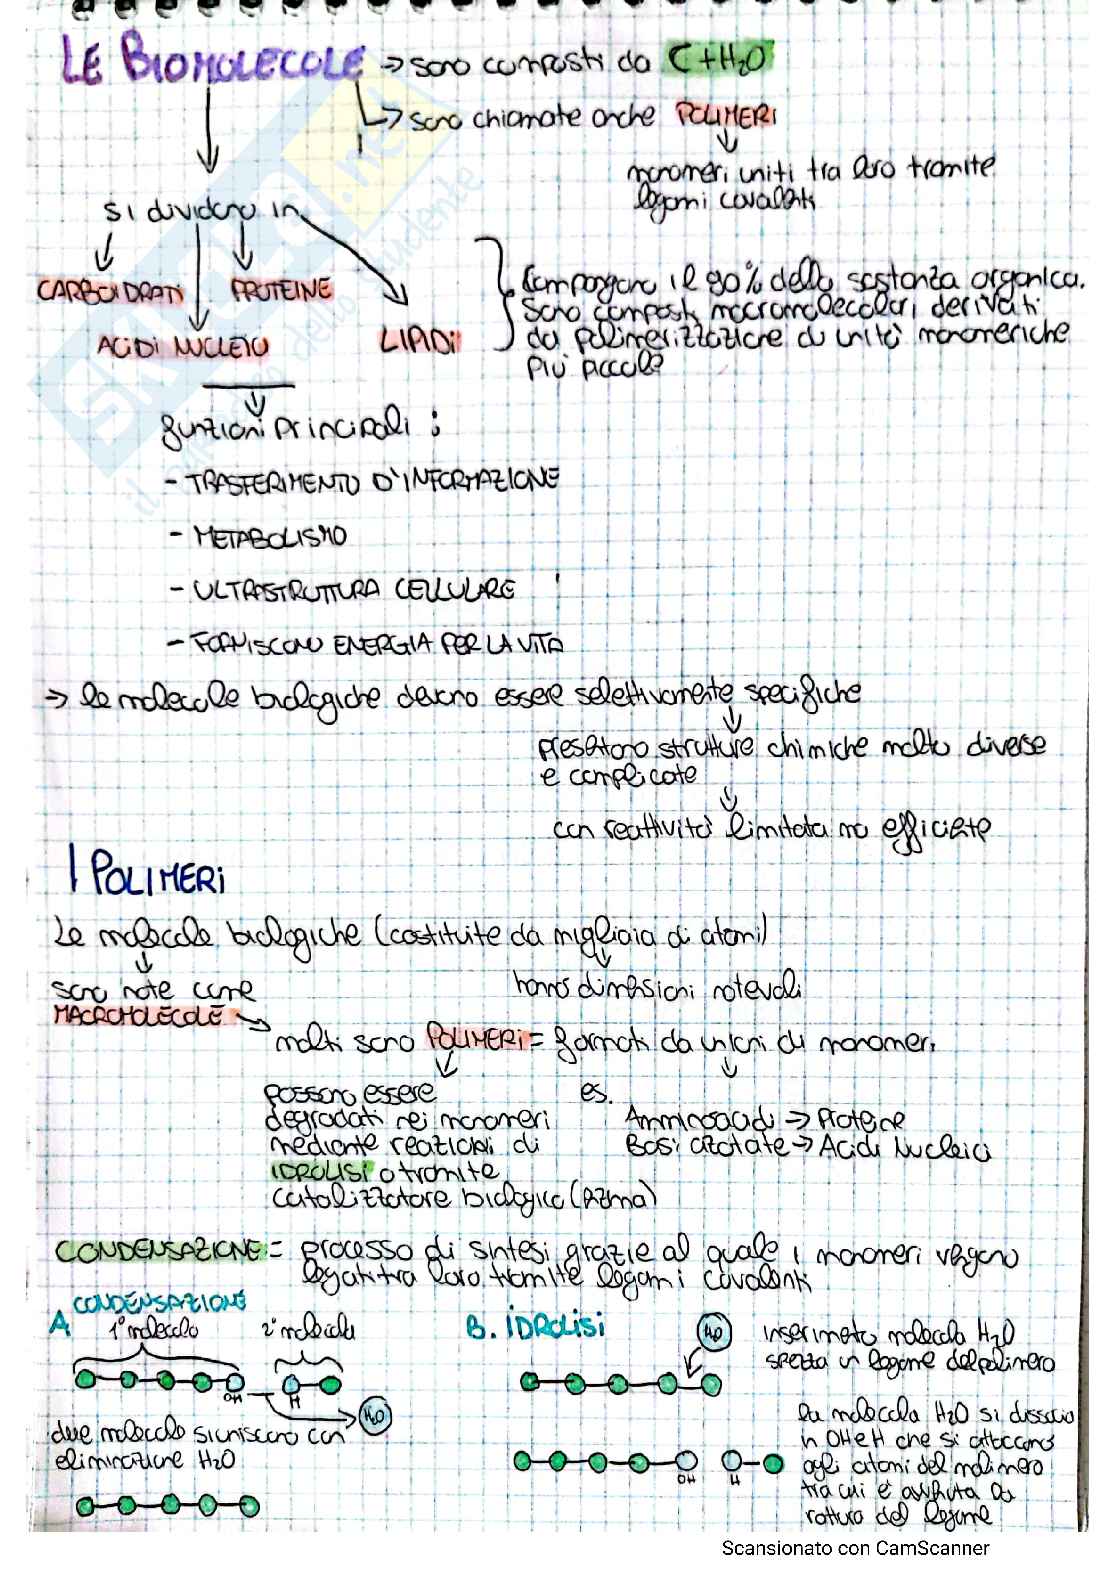 LE BIOMOLECOLE → sono composti da C+H₂O
→ sono chiamate anche POLIMERI
↓
monomeri uniti tra loro tramite
legami covalenti
si dividono in
CARBOIDRATI PROTEINE
ACIDI NUCLEICI LIPIDI
Compongono il 90% della sostanza organica.
Sono composti macromolecolari derivati
da polimerizzazione di unità monomeriche
più piccole
funzioni principali :
- TRASFERIMENTO D'INFORMAZIONE
- METABOLISMO
- ULTRASTRUTTURA CELLULARE
- FORNISCONO ENERGIA PER LA VITA
→ le molecole biologiche devono essere selettivamente specifiche
↓
presentano strutture chimiche molto diverse
e complicate
↓
con reattività limitata ma efficiente
I POLIMERI
Le molecole biologiche (costituite da migliaia di atomi)
sono note come
MACROMOLECOLE
hanno dimensioni notevoli
molti sono POLIMERI = formati da unioni di monomeri
possono essere
degradati nei monomeri
mediante reazioni di
IDROLISI o tramite
catalizzatore biologico (enzima)
es.
Amminoacidi → Proteine
Basi azotate → Acidi Nucleici
CONDENSAZIONE = processo di sintesi grazie al quale i monomeri vengono
legati tra loro tramite legami covalenti
A CONDENSAZIONE
1° molecola 2° molecola
OH H H₂O
due molecole si uniscono con
eliminazione H₂O
B. IDROLISI
H₂O
inserimento molecola H₂O
spezza un legame del polimero
la molecola H₂O si dissocia
in OH e H che si attaccano
agli atomi del molimero
tra cui è avvenuta la
rottura del legame
OH H
SKUOLA.net
il paradiso dello studente
Scansionato con CamScanner